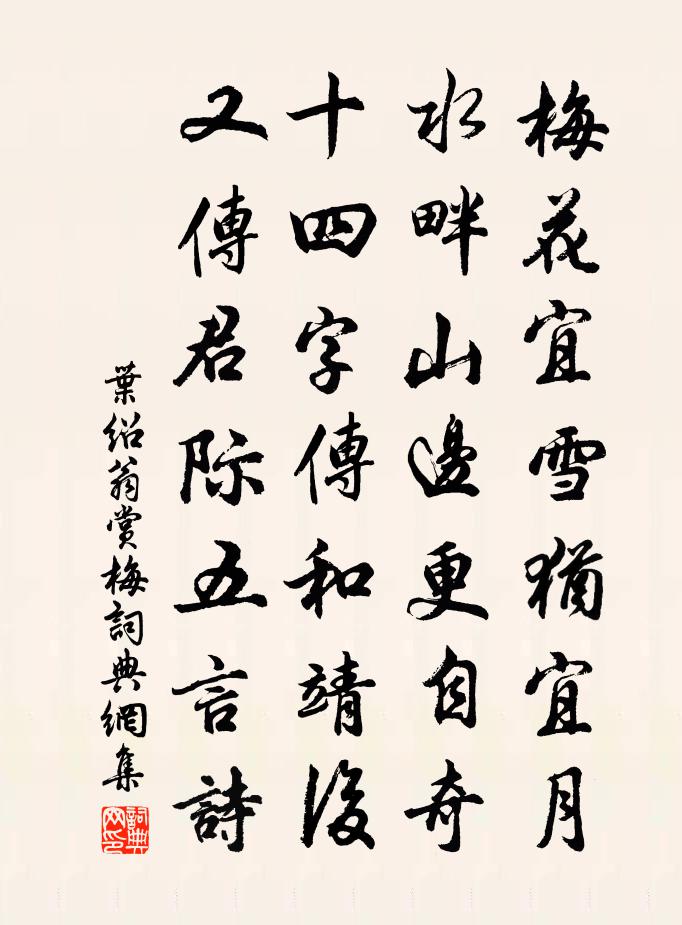 梅花宜雪猶宜月
水畔山邊更自奇
十四字傳和靖後
又傳君际五言詩
葉紹翁賞梅詞典網集
詞典网印